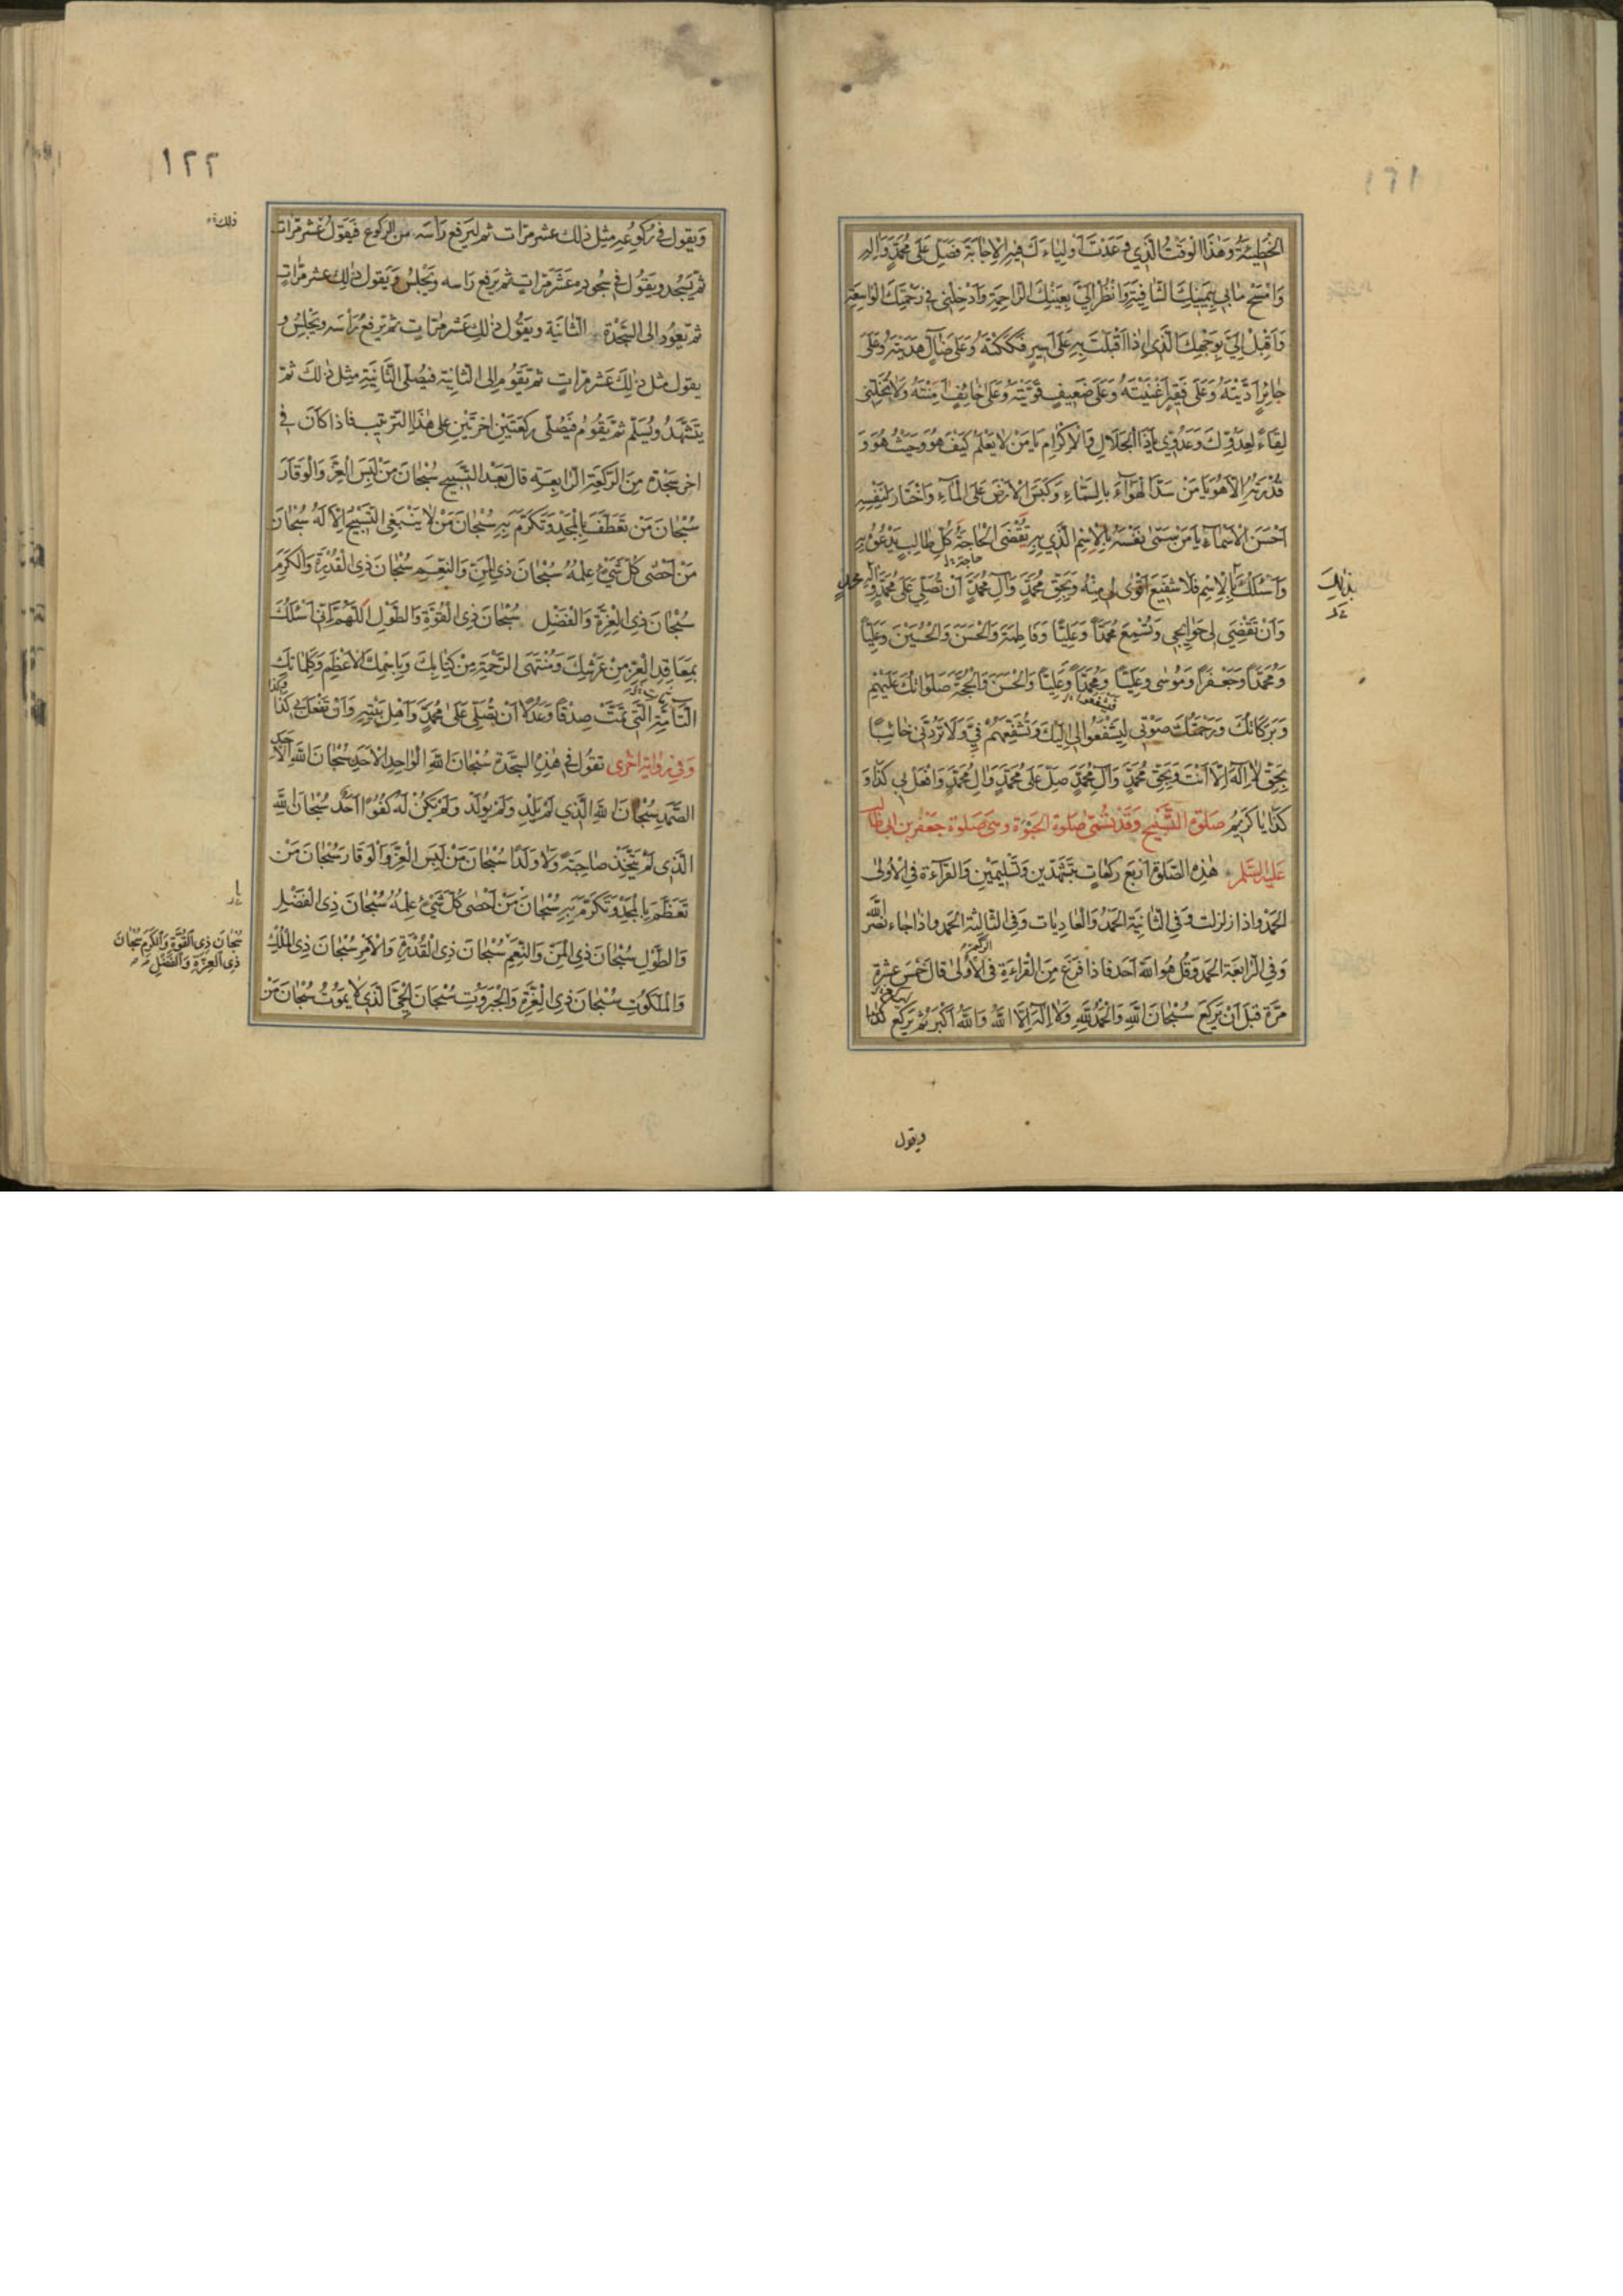 ١٢١
الْخَطِيئَةُ وَهٰذَا الْوَقْتُ الَّذِي وَعَدْتَ أَوْلِيَاءَكَ فِيهِ الْإِجَابَةَ فَصَلِّ عَلَى مُحَمَّدٍ وَآلِهِ
وَامْسَحْ مَا بِي بِيَمِينِكَ الشَّافِيَةِ وَانْظُرْ إِلَيَّ بِعَيْنِكَ الرَّاحِمَةِ وَأَدْخِلْنِي فِي رَحْمَتِكَ الْوَاسِعَةِ
وَأَقْبِلْ إِلَيَّ بِوَجْهِكَ الَّذِي إِذَا أَقْبَلْتَ بِهِ عَلَى أَسِيرٍ فَكَكْتَهُ وَعَلَى ضَالٍّ هَدَيْتَهُ وَعَلَى
جَائِرٍ أَدَّيْتَهُ وَعَلَى فَقِيرٍ أَغْنَيْتَهُ وَعَلَى ضَعِيفٍ قَوَّيْتَهُ وَعَلَى خَائِفٍ آمَنْتَهُ وَلَا تُخَلِّنِي
لِقَاءً لِعَدُوِّكَ وَعَدُوِّي يَا ذَا الْجَلَالِ وَالْإِكْرَامِ يَا مَنْ لَا يَعْلَمُ كَيْفَ هُوَ وَحَيْثُ هُوَ وَ
قُدْرَتَهُ إِلَّا هُوَ يَا مَنْ سَدَّ الْهَوَاءَ بِالسَّمَاءِ وَكَبَسَ الْأَرْضَ عَلَى الْمَاءِ وَاخْتَارَ لِنَفْسِهِ
أَحْسَنَ الْأَسْمَاءِ يَا مَنْ سَمَّى نَفْسَهُ بِالْإِسْمِ الَّذِي بِهِ تُقْضَى الْحَاجَةُ كُلِّ طَالِبٍ يَدْعُوهُ بِهِ
حاجة
وَأَسْئَلُكَ بِالْإِسْمِ فَلَا شَفِيعَ أَقْوَى لِي مِنْهُ وَبِحَقِّ مُحَمَّدٍ وَآلِ مُحَمَّدٍ أَنْ تُصَلِّيَ عَلَى مُحَمَّدٍ وَآلِ مُحَمَّدٍ
بِذٰلِكَ
وَأَنْ تَقْضِيَ لِي حَوَائِجِي وَتُسْمِعَ مُحَمَّدًا وَعَلِيًّا وَفَاطِمَةَ وَالْحَسَنَ وَالْحُسَيْنَ وَعَلِيًّا
وَمُحَمَّدًا وَجَعْفَرًا وَمُوسَى وَعَلِيًّا وَمُحَمَّدًا وَعَلِيًّا وَالْحَسَنَ وَالْحُجَّةَ صَلَوَاتُكَ عَلَيْهِمْ
وَبَرَكَاتُكَ وَرَحْمَتُكَ صَوْتِي لِيَشْفَعُوا لِي إِلَيْكَ وَتُشَفِّعَهُمْ فِيَّ وَلَا تَرُدَّنِي خَائِبًا
بِحَقِّ لَا إِلٰهَ إِلَّا أَنْتَ وَبِحَقِّ مُحَمَّدٍ وَآلِ مُحَمَّدٍ صَلِّ عَلَى مُحَمَّدٍ وَآلِ مُحَمَّدٍ وَافْعَلْ بِي كَذَا وَ
كَذَا يَا كَرِيمُ صَلٰوةُ التَّسْبِيحِ وَقَدْ تُسَمَّى صَلٰوةَ الْحَبْوَةِ وَهِيَ صَلٰوةُ جَعْفَرِ بْنِ أَبِي طَالِبٍ
عَلَيْهِ السَّلَمُ هٰذِهِ الصَّلٰوةُ أَرْبَعُ رَكَعَاتٍ بِتَشَهُّدَيْنِ وَتَسْلِيمَيْنِ وَالْقِرَاءَةُ فِي الْأُولَى
الْحَمْدُ وَإِذَا زُلْزِلَتْ وَفِي الثَّانِيَةِ الْحَمْدُ وَالْعَادِيَاتِ وَفِي الثَّالِثَةِ الْحَمْدُ وَإِذَا جَاءَ نَصْرُ اللَّهِ
وَفِي الرَّابِعَةِ الْحَمْدُ وَقُلْ هُوَ اللَّهُ أَحَدٌ فَإِذَا فَرَغَ مِنَ الْقِرَاءَةِ فِي الْأُولَى قَالَ خَمْسَ عَشْرَةَ
الركعة
مَرَّةً قَبْلَ أَنْ يَرْكَعَ سُبْحَانَ اللَّهِ وَالْحَمْدُ لِلَّهِ وَلَا إِلٰهَ إِلَّا اللَّهُ وَاللَّهُ أَكْبَرُ ثُمَّ يَرْكَعُ
ويقول
١٢٢
وَيَقُولُ فِي رُكُوعِهِ مِثْلَ ذٰلِكَ عَشْرَ مَرَّاتٍ ثُمَّ لْيَرْفَعْ رَأْسَهُ مِنَ الرُّكُوعِ فَيَقُولُ عَشْرَ مَرَّاتٍ
ذلك
ثُمَّ يَسْجُدُ وَيَقُولُ فِي سُجُودِهِ عَشْرَ مَرَّاتٍ ثُمَّ يَرْفَعُ رَأْسَهُ وَيَجْلِسُ وَيَقُولُ ذٰلِكَ عَشْرَ مَرَّاتٍ
ثُمَّ يَعُودُ إِلَى السَّجْدَةِ الثَّانِيَةِ وَيَقُولُ ذٰلِكَ عَشْرَ مَرَّاتٍ ثُمَّ يَرْفَعُ رَأْسَهُ وَيَجْلِسُ وَ
يَقُولُ مِثْلَ ذٰلِكَ عَشْرَ مَرَّاتٍ ثُمَّ يَقُومُ إِلَى الثَّانِيَةِ فَيُصَلِّي الثَّانِيَةَ مِثْلَ ذٰلِكَ ثُمَّ
يَتَشَهَّدُ وَيُسَلِّمُ ثُمَّ يَقُومُ فَيُصَلِّي رَكْعَتَيْنِ أُخْرَتَيْنِ عَلَى هٰذَا التَّرْتِيبِ فَإِذَا كَانَ فِي
آخِرِ سَجْدَةٍ مِنَ الرَّكْعَةِ الرَّابِعَةِ قَالَ بَعْدَ التَّسْبِيحِ سُبْحَانَ مَنْ لَبِسَ الْعِزَّ وَالْوَقَارَ
سُبْحَانَ مَنْ تَعَطَّفَ بِالْمَجْدِ وَتَكَرَّمَ بِهِ سُبْحَانَ مَنْ لَا يَنْبَغِي التَّسْبِيحُ إِلَّا لَهُ سُبْحَانَ
مَنْ أَحْصَى كُلَّ شَيْءٍ عِلْمُهُ سُبْحَانَ ذِي الْمَنِّ وَالنِّعَمِ سُبْحَانَ ذِي الْقُدْرَةِ وَالْكَرَمِ
سُبْحَانَ ذِي الْعِزَّةِ وَالْفَضْلِ سُبْحَانَ ذِي الْقُوَّةِ وَالطَّوْلِ اللَّهُمَّ إِنِّي أَسْئَلُكَ
بِمَعَاقِدِ الْعِزِّ مِنْ عَرْشِكَ وَمُنْتَهَى الرَّحْمَةِ مِنْ كِتَابِكَ وَبِاسْمِكَ الْأَعْظَمِ وَكَلِمَاتِكَ
التَّامَّةِ الَّتِي تَمَّتْ صِدْقًا وَعَدْلًا أَنْ تُصَلِّيَ عَلَى مُحَمَّدٍ وَأَهْلِ بَيْتِهِ وَأَنْ تَفْعَلَ بِي كَذَا وَكَذَا
وَفِي رِوَايَةٍ أُخْرَى تَقُولُ فِي هٰذِهِ السَّجْدَةِ سُبْحَانَ اللَّهِ الْوَاحِدِ الْأَحَدِ سُبْحَانَ اللَّهِ الْأَحَدِ
الصَّمَدِ سُبْحَانَ اللَّهِ الَّذِي لَمْ يَلِدْ وَلَمْ يُولَدْ وَلَمْ يَكُنْ لَهُ كُفُوًا أَحَدٌ سُبْحَانَ اللَّهِ
الَّذِي لَمْ يَتَّخِذْ صَاحِبَةً وَلَا وَلَدًا سُبْحَانَ مَنْ لَبِسَ الْعِزَّ وَالْوَقَارَ سُبْحَانَ مَنْ
تَعَظَّمَ بِالْمَجْدِ وَتَكَرَّمَ بِهِ سُبْحَانَ مَنْ أَحْصَى كُلَّ شَيْءٍ عِلْمُهُ سُبْحَانَ ذِي الْفَضْلِ
وَالطَّوْلِ سُبْحَانَ ذِي الْمَنِّ وَالنِّعَمِ سُبْحَانَ ذِي الْقُدْرَةِ وَالْأَمْرِ سُبْحَانَ ذِي الْمُلْكِ
سُبْحَانَ ذِي الْقُوَّةِ وَالْكَرَمِ سُبْحَانَ
ذِي الْعِزَّةِ وَالْفَضْلِ
وَالْمَلَكُوتِ سُبْحَانَ ذِي الْعِزَّةِ وَالْجَبَرُوتِ سُبْحَانَ الْحَيِّ الَّذِي لَا يَمُوتُ سُبْحَانَ مَنْ